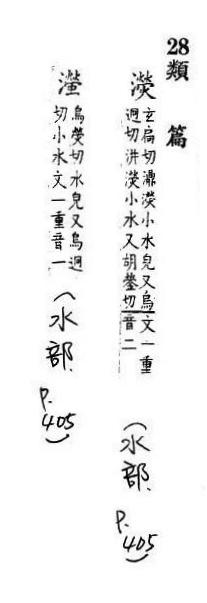 28類篇
濙 玄扃切濎濙小水皃又烏
迥切汫濙小水又胡鎣切文一重音二
(水部.
P.
405)
瀅 烏熒切水皃又烏迥
切小水文一重音一
(水部.
P.
405)